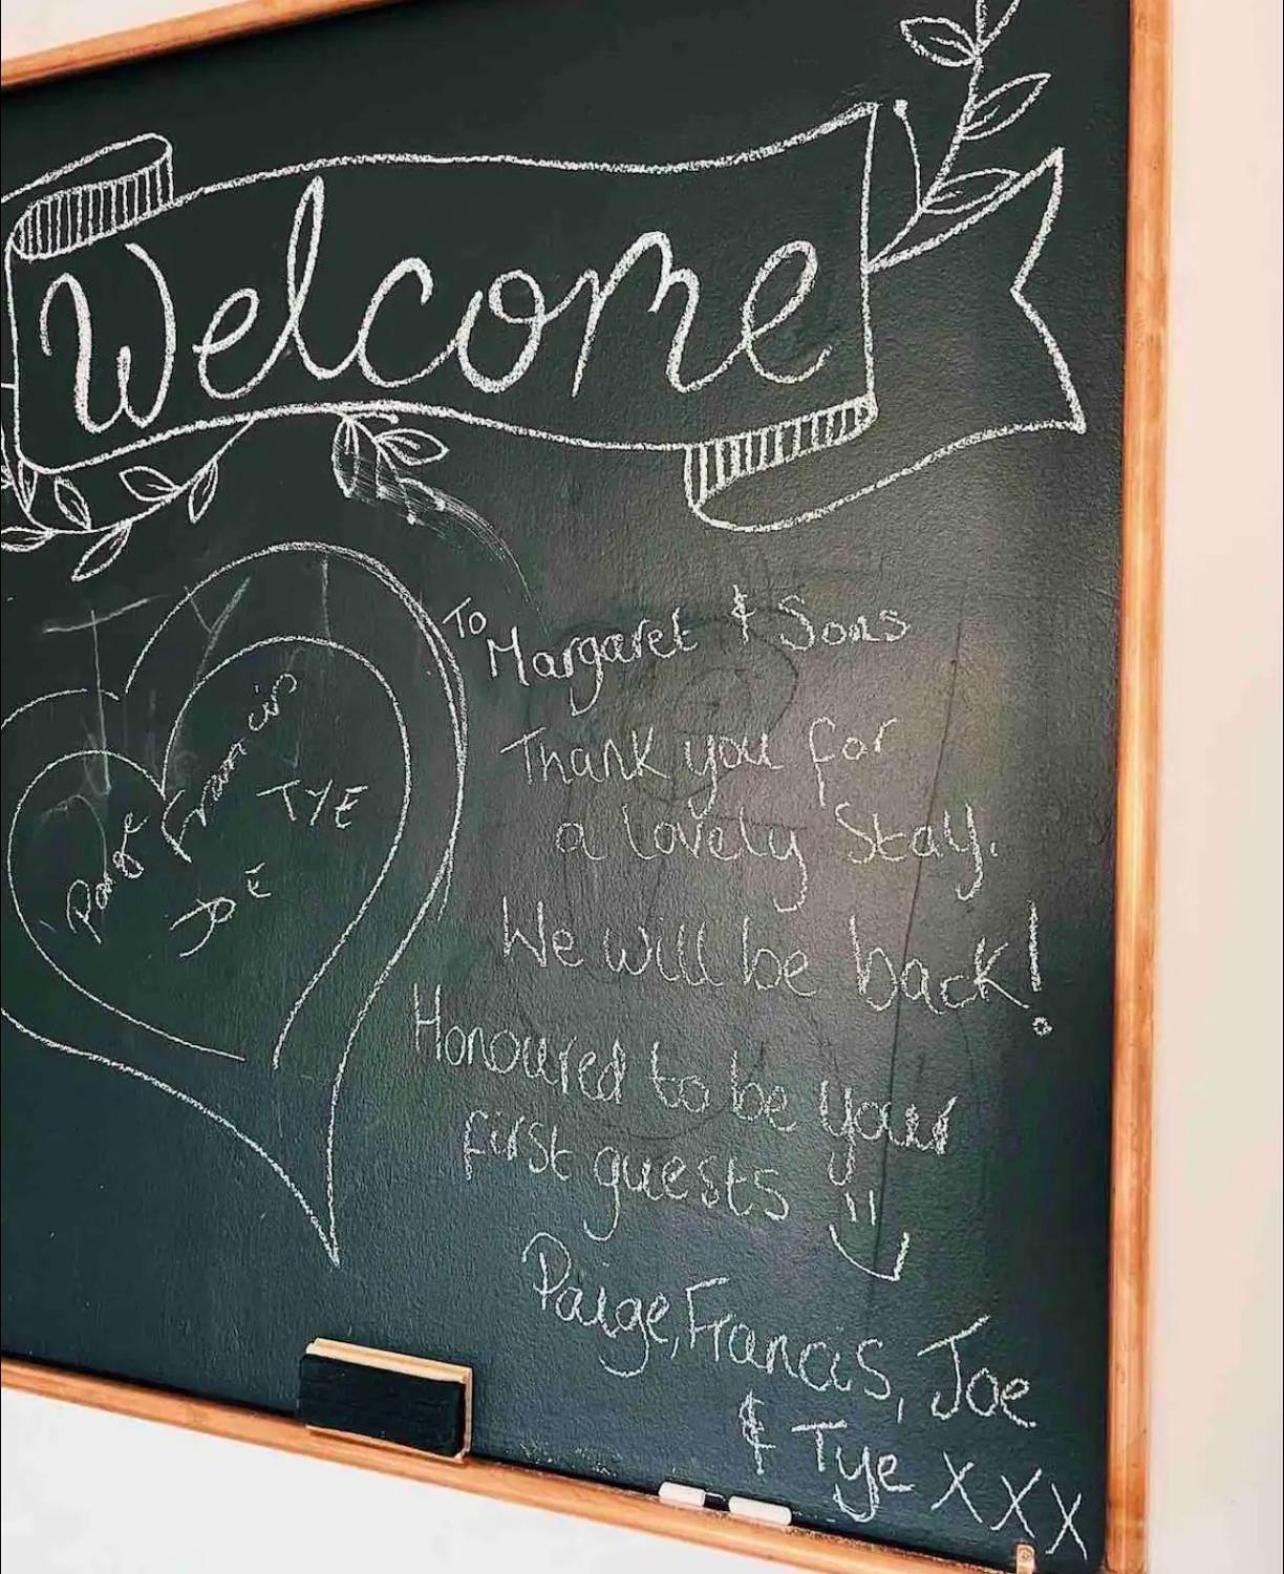 Welcome
To
Margaret & Sons
Thank you for
a lovely Stay.
We will be back!
Honoured to be your
first guests
Paige, Francis, Joe
& Tye XXX
Francis
TYE
JOE